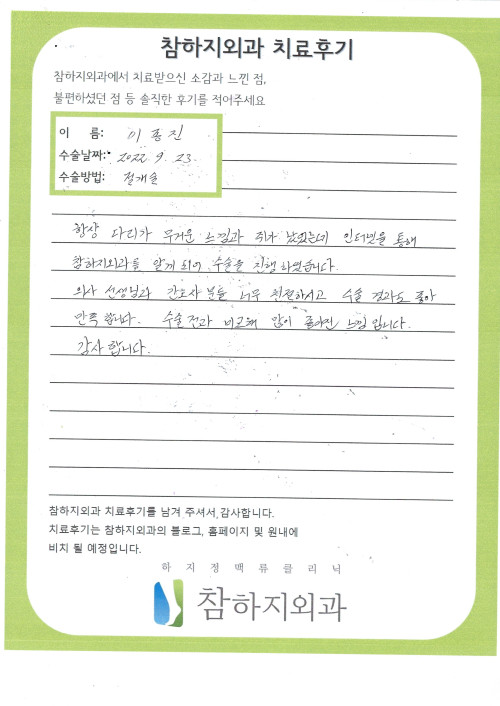 참하지외과 치료후기
참하지외과에서 치료받으신 소감과 느낀 점,
불편하셨던 점 등 솔직한 후기를 적어주세요
이 름: 이종진
수술날짜: 2022. 9. 23.
수술방법: 절개술
항상 다리가 무거운 느낌과 쥐가 났었는데 인터넷을 통해
참하지외과를 알게 되어 수술을 진행 하였습니다.
의사 선생님과 간호사 분들 너무 친절하시고 수술 결과도 좋아
만족 합니다. 수술 전과 비교해 많이 좋아진 느낌 입니다.
감사 합니다.
참하지외과 치료후기를 남겨 주셔서 감사합니다.
치료후기는 참하지외과의 블로그, 홈페이지 및 원내에
비치 될 예정입니다.
하지정맥류클리닉
참하지외과